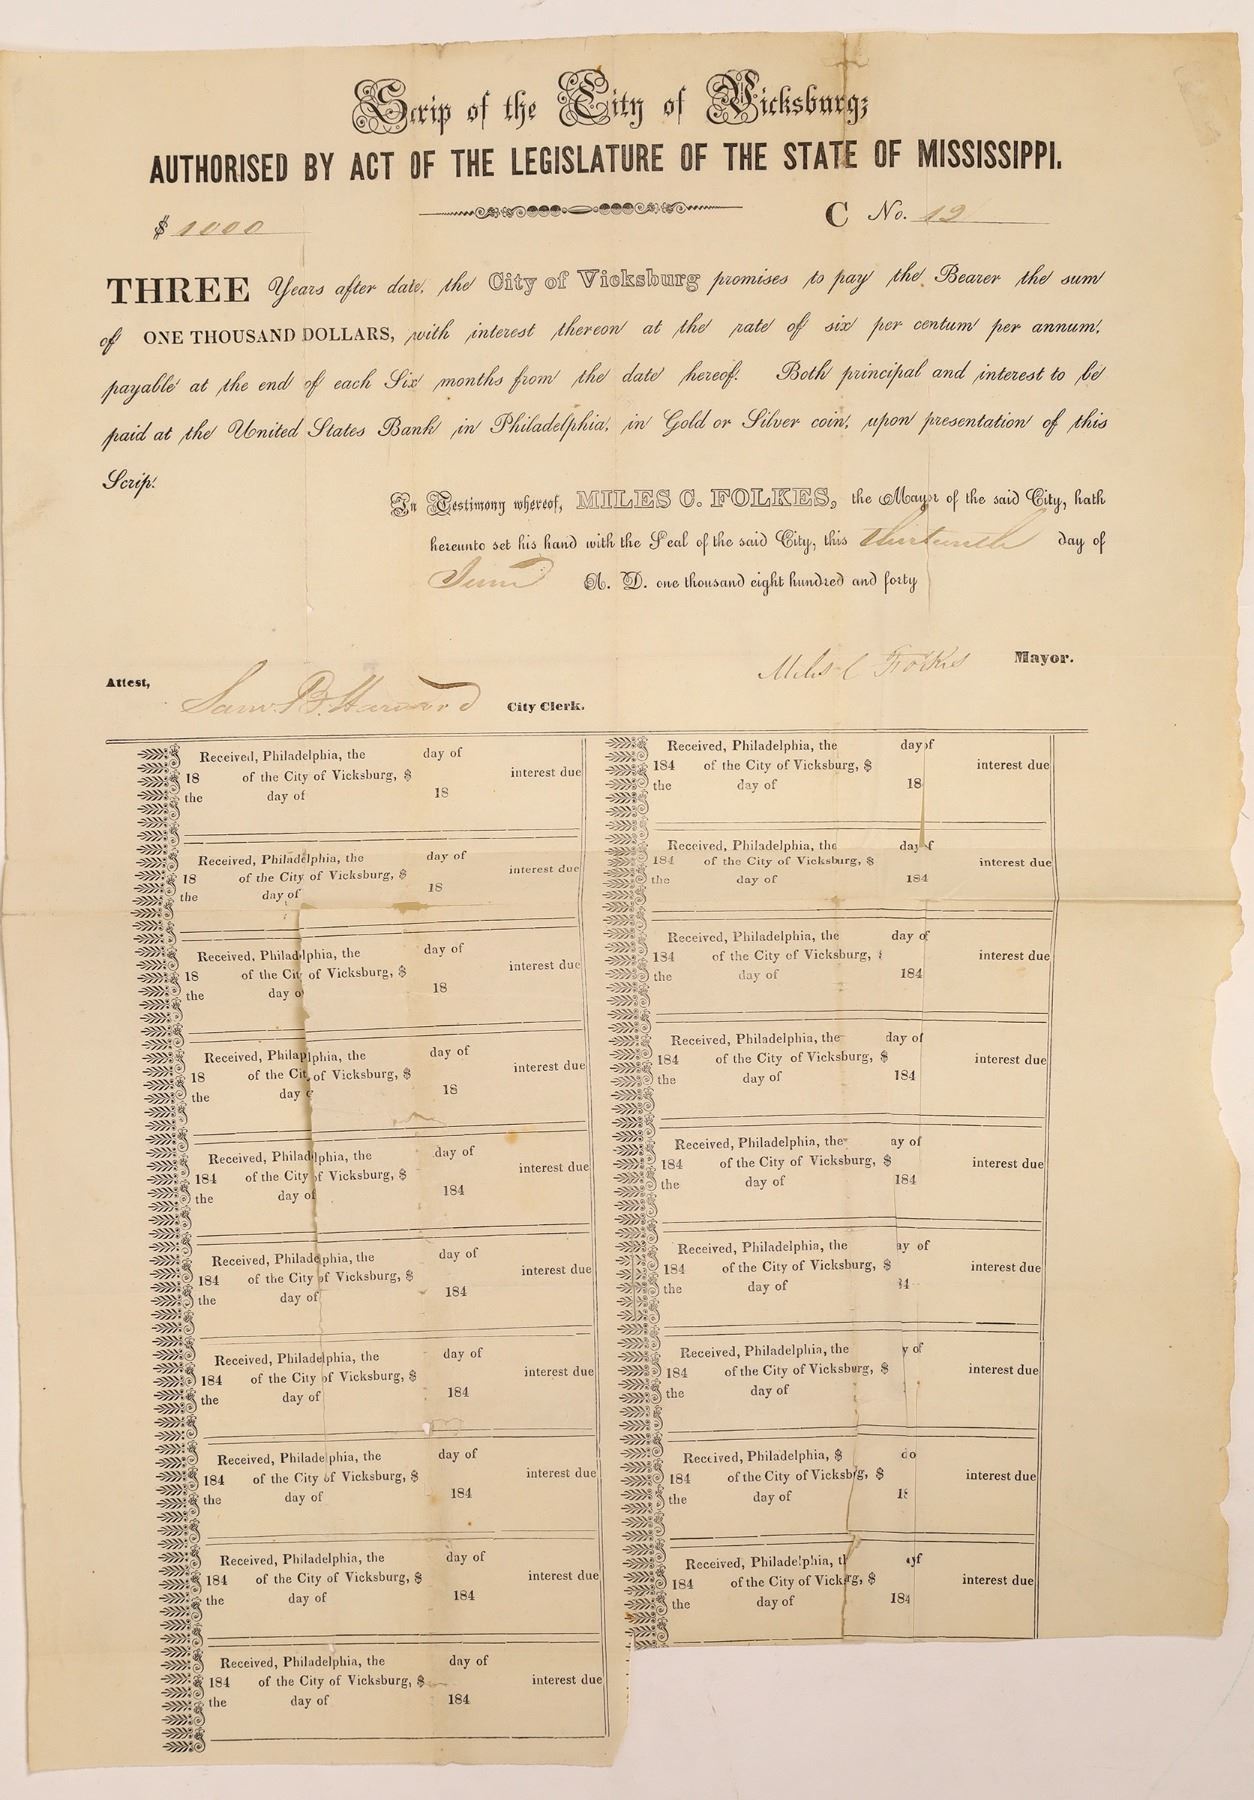 Scrip of the City of Vicksburg;
AUTHORISED BY ACT OF THE LEGISLATURE OF THE STATE OF MISSISSIPPI.
$ 1000 C No. 12
THREE Years after date, the City of Vicksburg promises to pay the Bearer the sum
of ONE THOUSAND DOLLARS, with interest thereon at the rate of six per centum per annum,
payable at the end of each Six months from the date hereof. Both principal and interest to be
paid at the United States Bank in Philadelphia, in Gold or Silver coin, upon presentation of this
Scrip.
In Testimony whereof, MILES C. FOLKES, the Mayor of the said City, hath
hereunto set his hand with the Seal of the said City, this thirteenth day of
June A. D. one thousand eight hundred and forty
Miles C Folkes Mayor.
Attest,
Saml B. City Clerk.
Received, Philadelphia, the day of
18 of the City of Vicksburg, $ interest due
the day of 18
Received, Philadelphia, the day of
18 of the City of Vicksburg, $ interest due
the day of 18
Received, Philadelphia, the day of
18 of the City of Vicksburg, $ interest due
the day of 18
Received, Philadelphia, the day of
18 of the City of Vicksburg, $ interest due
the day of 18
Received, Philadelphia, the day of
184 of the City of Vicksburg, $ interest due
the day of 184
Received, Philadelphia, the day of
184 of the City of Vicksburg, $ interest due
the day of 184
Received, Philadelphia, the day of
184 of the City of Vicksburg, $ interest due
the day of 184
Received, Philadelphia, the day of
184 of the City of Vicksburg, $ interest due
the day of 184
Received, Philadelphia, the day of
184 of the City of Vicksburg, $ interest due
the day of 184
Received, Philadelphia, the day of
184 of the City of Vicksburg, $ interest due
the day of 184
Received, Philadelphia, the day of
184 of the City of Vicksburg, $ interest due
the day of 18
Received, Philadelphia, the day of
184 of the City of Vicksburg, $ interest due
the day of 184
Received, Philadelphia, the day of
184 of the City of Vicksburg, interest due
the day of 184
Received, Philadelphia, the day of
184 of the City of Vicksburg, $ interest due
the day of 184
Received, Philadelphia, the ay of
184 of the City of Vicksburg, $ interest due
the day of 184
Received, Philadelphia, the ay of
184 of the City of Vicksburg, $ interest due
the day of 84
Received, Philadelphia, the y of
184 of the City of Vicksburg, $ interest due
the day of
Received, Philadelphia, $
184 of the City of Vicksburg, $ interest due
the day of 18
Received, Philadelphia, of
184 of the City of Vicksburg, $ interest due
the day of 184